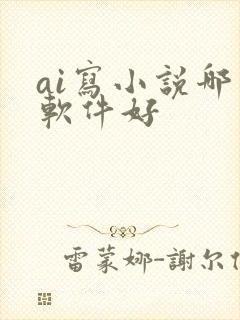 ai寫小說哪
軟件好
雷蒙娜-謝尔